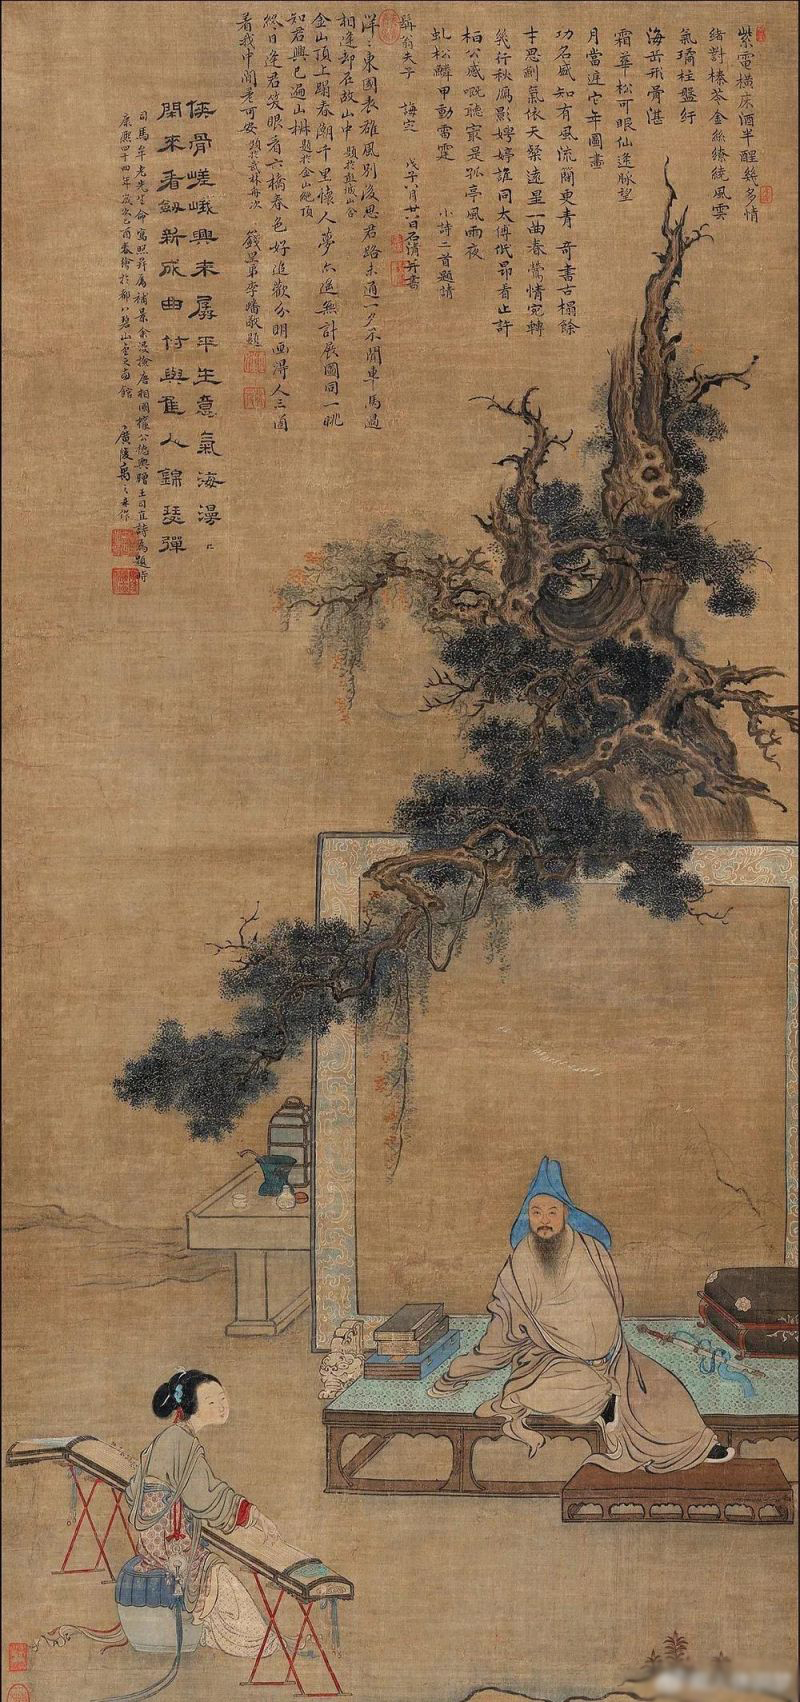 紫電橫床酒半醒多情
緒對榛苓金絲繚繞風雲
氣璚柱盤紆
海岳飛骨湛
霜華松可眠仙逢脉望
月當遲它年圖畫
功名盛知有風流關更青 奇書古榻餘
才思劍氣依天粲遠星一曲春鶯情宛轉
幾行秋鴈影娉婷誰同太傅低昂看止許
桓公感嘅聽寂是孤亭風雨夜
虬松鱗甲動雷霆 小詩二首題請
髯翁夫子 誨定 戊子八月廿八日石倩并書
洋洋東國表雄風別後思君路未通一夕不聞車馬過
相逢却在故山中 題於鹽城山舍
金山頂上蹋春潮千里懷人夢亦遙無計展圖同一眺
知君興已遍山椒 題於金山絕頂
終日逢君笑眼看六橋春色好追歡分明画得人三箇
着我中間是可安 題於武林舟次 錢唐弟李敬題
俠骨嵯峨興未孱平生意氣海漫漫
閒來看劍新成曲付與佳人錦瑟彈
司馬牟老先生命寫照并屬補景余漫撿唐相國權公德輿贈王司直詩為題時
康熙四十四年歲次乙酉春繪於都门碧山堂之南館 廣陵禹之鼎作